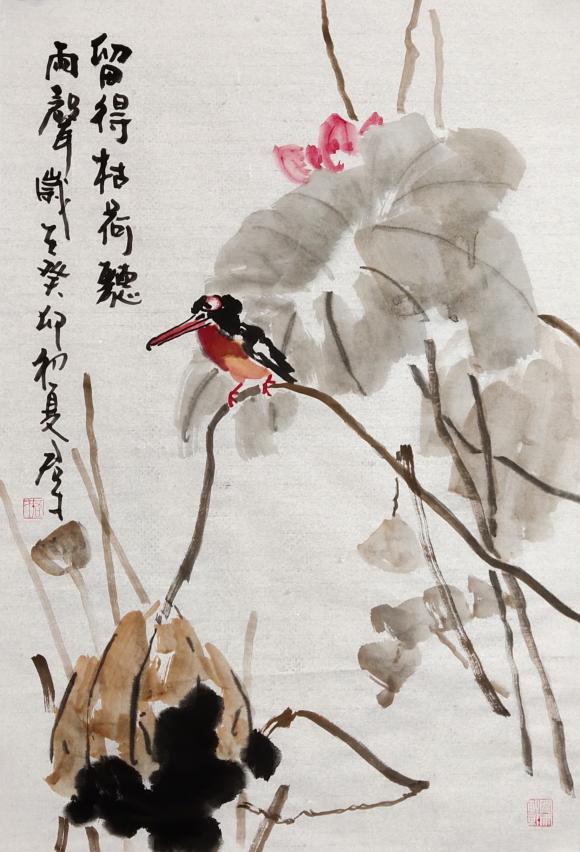 留得枯荷聽
雨聲歲次癸卯初夏